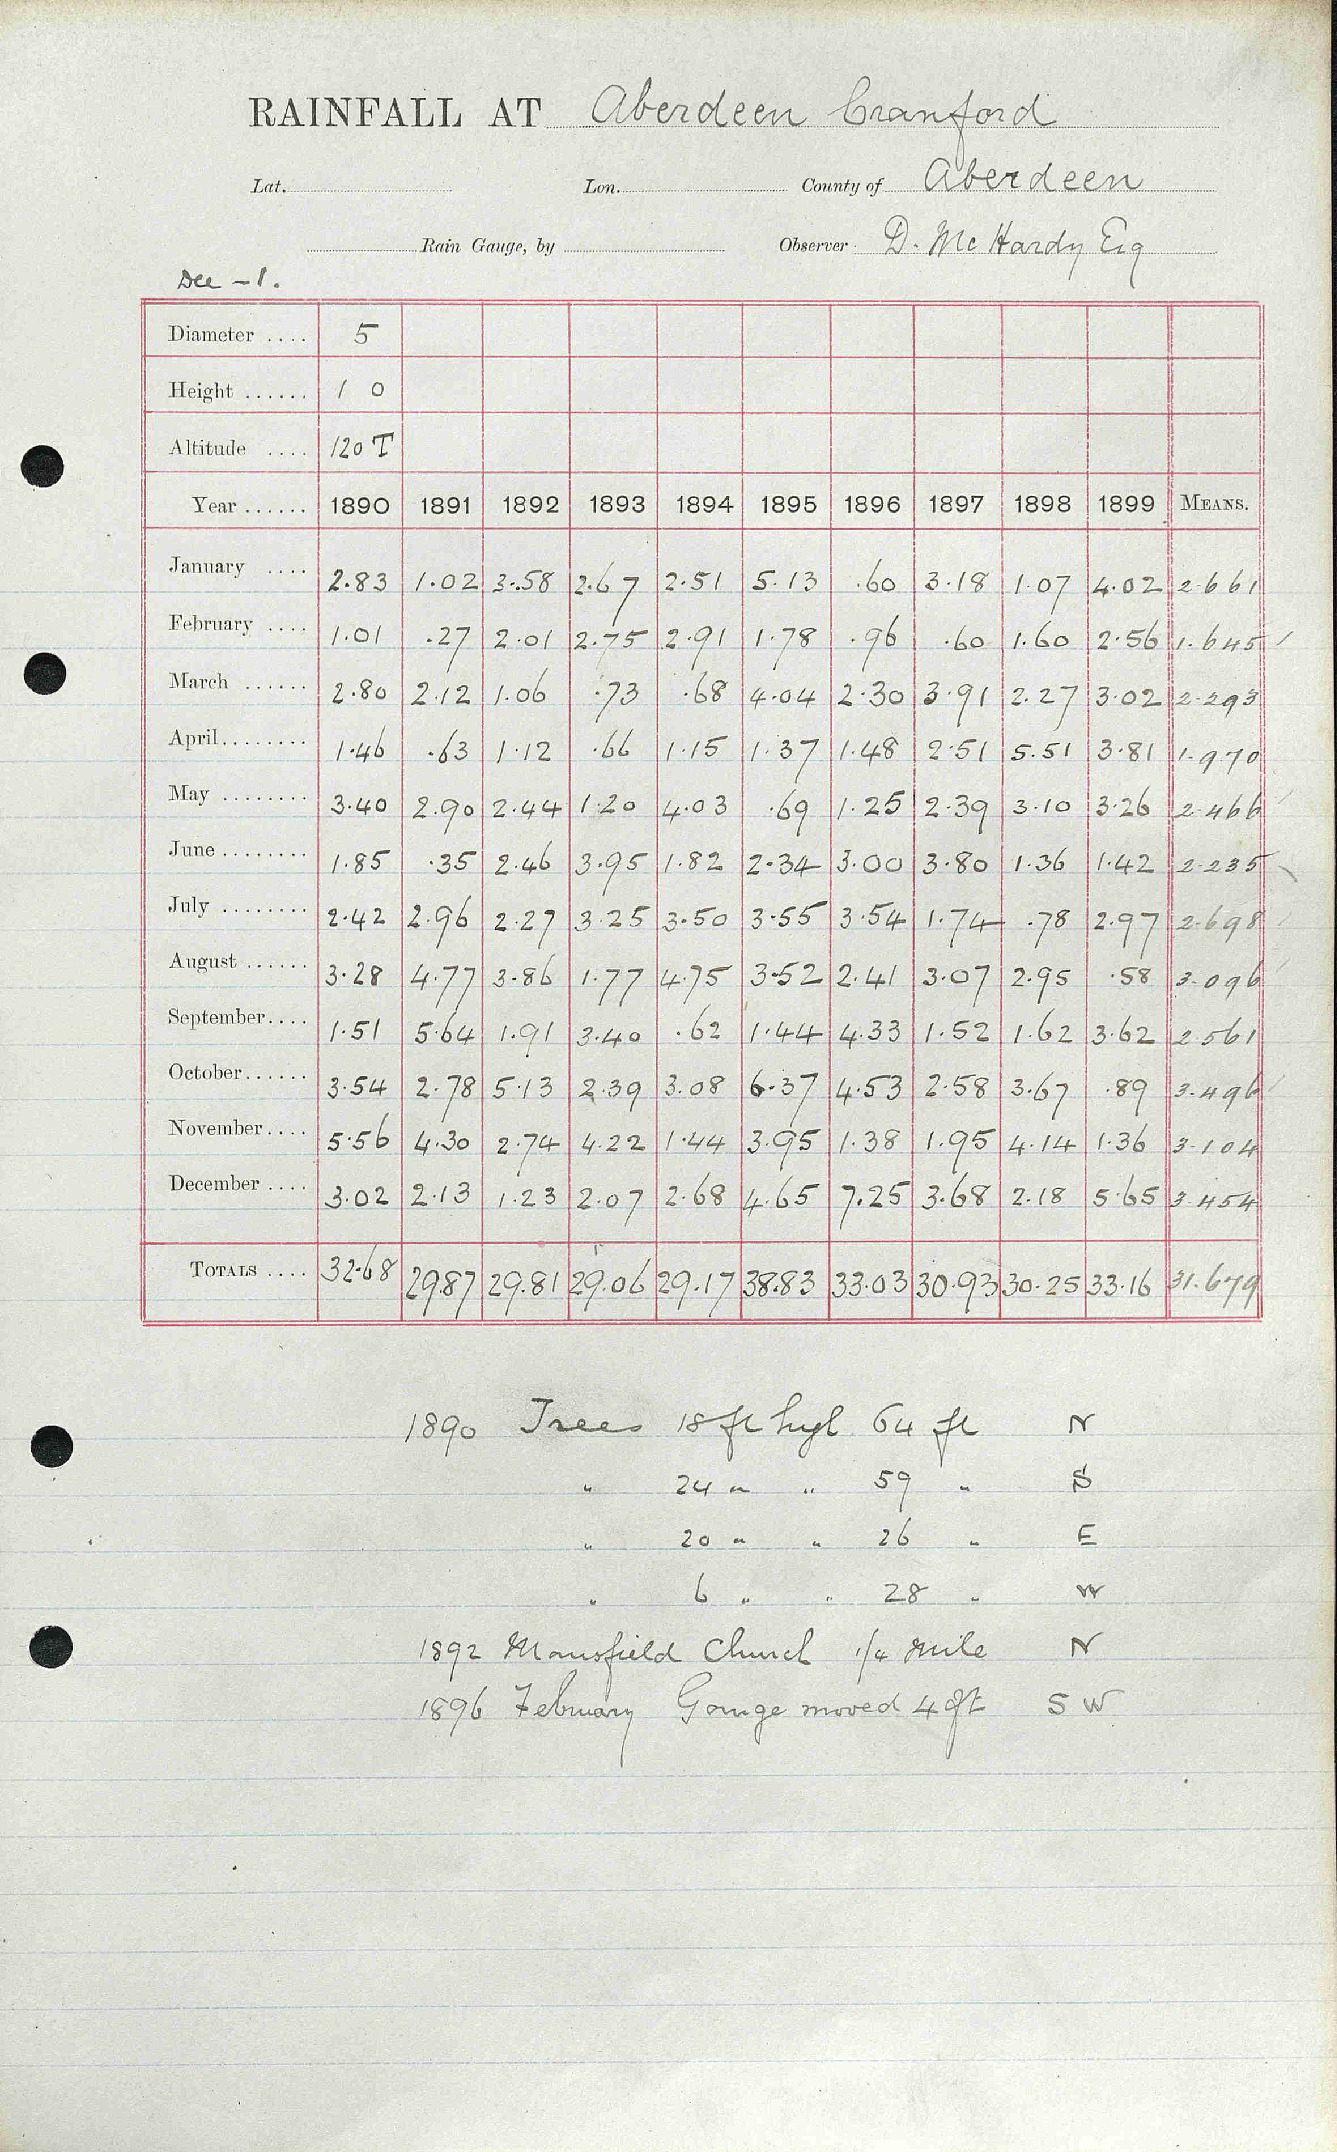 RAINFALL AT Aberdeen Cranford
Lat. Lon. County of Aberdeen
Rain Gauge, by Observer D. McHardy Esq
Dee - 1.
Diameter .... 5
Height ...... 1 0
Altitude .... 120 T
Year ...... 1890 1891 1892 1893 1894 1895 1896 1897 1898 1899 MEANS.
January .... 2.83 1.02 3.58 2.67 2.51 5.13 .60 3.18 1.07 4.02 2.661
February .... 1.01 .27 2.01 2.75 2.91 1.78 .96 .60 1.60 2.56 1.645
March ...... 2.80 2.12 1.06 .73 .68 4.04 2.30 3.91 2.27 3.02 2.293
April........ 1.46 .63 1.12 .66 1.15 1.37 1.48 2.51 5.51 3.81 1.970
May ........ 3.40 2.90 2.44 1.20 4.03 .69 1.25 2.39 3.10 3.26 2.466
June ........ 1.85 .35 2.46 3.95 1.82 2.34 3.00 3.80 1.36 1.42 2.235
July ........ 2.42 2.96 2.27 3.25 3.50 3.55 3.54 1.74 .78 2.97 2.698
August ...... 3.28 4.77 3.86 1.77 4.75 3.52 2.41 3.07 2.95 .58 3.096
September.... 1.51 5.64 1.91 3.40 .62 1.44 4.33 1.52 1.62 3.62 2.561
October...... 3.54 2.78 5.13 2.39 3.08 6.37 4.53 2.58 3.67 .89 3.496
November.... 5.56 4.30 2.74 4.22 1.44 3.95 1.38 1.95 4.14 1.36 3.104
December .... 3.02 2.13 1.23 2.07 2.68 4.65 7.25 3.68 2.18 5.65 3.454
TOTALS .... 32.68 29.87 29.81 29.06 29.17 38.83 33.03 30.93 30.25 33.16 31.679
1890 Trees 18 ft high 64 ft N
" 24 " " 59 " S
" 20 " " 26 " E
" 6 " " 28 " W
1892 Mansfield Church 1/4 mile N
1896 February Gauge moved 4 ft S W